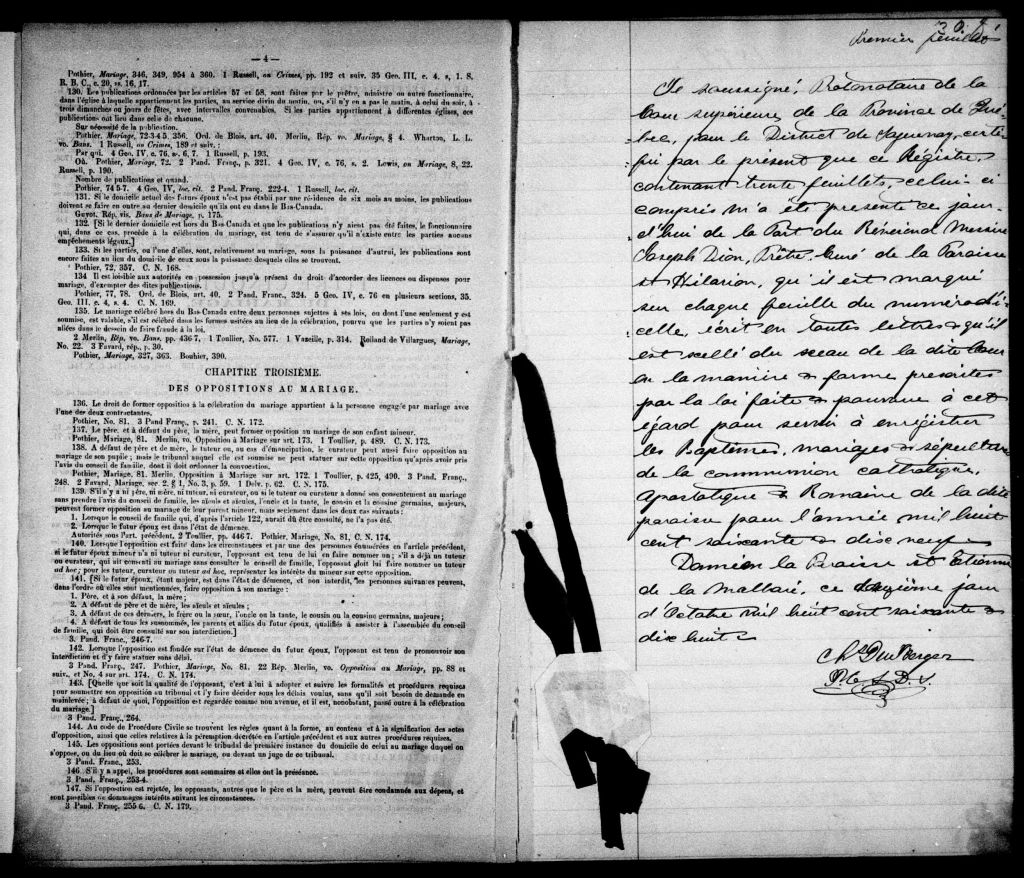 — 4 —
Pothier, Mariage, 346, 349, 954 à 360. 1 Russell, on Crimes, pp. 192 et suiv. 35 Geo. III, c. 4, s. 1. S.
R. B. C., c. 20, ss. 16, 17.
130. Les publications ordonnées par les articles 57 et 58, sont faites par le prêtre, ministre ou autre fonctionnaire,
dans l'église à laquelle appartiennent les parties, au service divin du matin, ou, s'il n'y en a pas le matin, à celui du soir, à
trois dimanches ou jours de fêtes, avec intervalles convenables. Si les parties appartiennent à différentes églises, ces
publications ont lieu dans celle de chacune.
Sur nécessité de la publication.
Pothier, Mariage, 72-3-4 5, 356. Ord. de Blois, art. 40. Merlin, Rép. vo. Mariage, § 4. Wharton, L. L.
vo. Bans. 1 Russell, on Crimes, 189 et suiv. :
Par qui. 4 Geo. IV, c. 76, s. 6, 7. 1 Russell, p. 193.
Où. Pothier, Mariage, 72. 2 Pand. Franç., p. 321. 4 Geo. IV, c. 76, s. 2. Lewis, on Mariage, 8, 22.
Russell, p. 190.
Nombre de publications et quand.
Pothier, 74 5-7. 4 Geo. IV, loc. cit. 2 Pand. Franç. 222-4. 1 Russell, loc. cit.
131. Si le domicile actuel des futurs époux n'est pas établi par une résidence de six mois au moins, les publications
doivent se faire en outre au dernier domicile qu'ils ont eu dans le Bas-Canada.
Guyot, Rép. vis. Bans de Mariage, p. 175.
132. [Si le dernier domicile est hors du Bas-Canada et que les publications n'y aient pas été faites, le fonctionnaire
qui, dans ce cas, procède à la célébration du mariage, est tenu de s'assurer qu'il n'existe entre les parties aucuns
empêchements légaux.]
133. Si les parties, ou l'une d'elles, sont, relativement au mariage, sous la puissance d'autrui, les publications sont
encore faites au lieu du domicile de ceux sous la puissance desquels elles se trouvent.
Pothier, 72, 357. C. N. 168.
134 Il est loisible aux autorités en possession jusqu'à présent du droit d'accorder des licences ou dispenses pour
mariage, d'exempter des dites publications.
Pothier, 77, 78. Ord. de Blois, art. 40. 2 Pand. Franç., 324. 5 Geo. IV, c. 76 en plusieurs sections, 35.
Geo. III, c. 4, s. 4. C. N. 169.
135. Le mariage célébré hors du Bas-Canada entre deux personnes sujettes à ses lois, ou dont l'une seulement y est
soumise, est valable, s'il est célébré dans les formes usitées au lieu de la célébration, pourvu que les parties n'y soient pas
allées dans le dessein de faire fraude à la loi.
2 Merlin, Rép. vo. Bans, pp. 436 7. 1 Toullier, No. 577. 1 Vazeille, p. 314. Rolland de Villargues, Mariage,
No. 22. 3 Favard, rép., p. 30.
Pothier, Mariage, 327, 363. Bouhier, 390.
CHAPITRE TROISIÈME.
DES OPPOSITIONS AU MARIAGE.
136. Le droit de former opposition à la célébration du mariage appartient à la personne engagée par mariage avec
l'une des deux contractantes.
Pothier, No. 81. 3 Pand Franç., p. 241. C. N. 172.
137. Le père, et à défaut du père, la mère, peut former opposition au mariage de son enfant mineur.
Pothier, Mariage, 81. Merlin, vo. Opposition à Mariage sur art. 173. 1 Toullier, p. 489. C. N. 173.
138. A défaut de père et de mère, le tuteur ou, au cas d'émancipation, le curateur peut aussi faire opposition au
mariage de son pupile ; mais le tribunal auquel elle est soumise ne peut statuer sur cette opposition qu'après avoir pris
l'avis du conseil de famille, dont il doit ordonner la convocation.
Pothier, Mariage, 81. Merlin, Opposition à Mariage sur art. 172. 1 Toullier, p. 425, 490. 3 Pand. Franç.,
248. 2 Favard, Mariage, sec. 2. § 1, No. 3, p. 59. 1 Delv. p. 62. C. N. 175.
139. S'il n'y a ni père, ni mère, ni tuteur, ni curateur, ou si le tuteur ou curateur a donné son consentement au mariage
sans prendre l'avis du conseil de famille, les aïeuls et aïeules, l'oncle et la tante, le cousin et la cousine germains, majeurs,
peuvent former opposition au mariage de leur parent mineur, mais seulement dans les deux cas suivants :
1. Lorsque le conseil de famille qui, d'après l'article 122, aurait dû être consulté, ne l'a pas été.
2. Lorsque le futur époux est dans l'état de démence.
Autorités sous l'art. précédent. 2 Toullier, pp. 446 7. Pothier, Mariage, No. 81, C. N. 174.
140. Lorsque l'opposition est faite dans les circonstances et par une des personnes énumérées en l'article précédent,
si le futur époux mineur n'a ni tuteur ni curateur, l'opposant est tenu de lui en faire nommer un ; s'il a déjà un tuteur
ou curateur, qui ait consenti au mariage sans consulter le conseil de famille, l'opposant doit lui faire nommer un tuteur
ad hoc ; pour les tuteur, curateur ou tuteur ad hoc, représenter les intérêts du mineur sur cette opposition.
141. [Si le futur époux, étant majeur, est dans l'état de démence, et non interdit, les personnes suivantes peuvent,
dans l'ordre où elles sont mentionnées, faire opposition à son mariage :
1. Père, et à son défaut, la mère ;
2. A défaut de père et de mère, les aïeuls et aïeules ;
3. A défaut de ces derniers, le frère ou la sœur, l'oncle ou la tante, le cousin ou la cousine germains, majeurs ;
4. A défaut de tous les susnommés, les parents et alliés du futur époux, qualifiés à assister à l'assemblée du conseil
de famille, qui doit être consulté sur son interdiction.]
3. Pand. Franc., 246-7.
142. Lorsque l'opposition est fondée sur l'état de démence du futur époux, l'opposant est tenu de promouvoir son
interdiction et d'y faire statuer sans délai.
3 Pand. Franç., 247. Pothier, Mariage, No. 81. 22 Rép. Merlin, vo. Opposition au Mariage, pp. 88 et
suiv., et No. 4 sur art. 174. C. N. 174.
143. [Quelque soit la qualité de l'opposant, c'est à lui à adopter et suivre les formalités et procédures requises
pour soumettre son opposition au tribunal et l'y faire décider sous les délais voulus, sans qu'il soit besoin de demande en
mainlevée ; à défaut de quoi, l'opposition est regardée comme non avenue, et il est, nonobstant, passé outre à la célébration
du mariage.]
3 Pand. Franç., 264.
144. Au code de Procédure Civile se trouvent les règles quant à la forme, au contenu et à la signification des actes
d'opposition, ainsi que celles relatives à la péremption décrétée en l'article précédent et aux autres procédures requises.
145. Les oppositions sont portées devant le tribunal de première instance du domicile de celui au mariage duquel on
s'oppose, ou du lieu où doit se célébrer le mariage, ou devant un juge de ce tribunal.
3 Pand. Franc., 253.
146 S'il y a appel, les procédures sont sommaires et elles ont la préséance.
3 Pand. Franç., 253-4.
147. Si l'opposition est rejetée, les opposants, autres que le père et la mère, peuvent être condamnés aux dépens, et
sont passibles de dommages intérêts suivant les circonstances.
3 Pand. Franç. 255-6. C. N. 179.
Premier feuillet
Je soussigné, Protonotaire de la
Cour supérieure de la Province de Qué-
bec, pour le District de Saguenay, certi-
fie par le présent que ce Régistre
contenant trente feuillets, celui-ci
compris m'a été présenté ce jour-
d'hui de la Part du Révérend Messire
Joseph Dion, Prêtre Curé de la Paroisse
St Hilarion, qu'il est marqué
sur chaque feuille du numéro d'i-
celle, écrit en toutes lettres & qu'il
est scellé du sceau de la dite Cour
en la manière & forme prescrites
par la loi faite & pourvue à cet
égard pour servir à enrégistrer
les Baptêmes, mariages & sépultures
de la communion catholique,
Apostolique & Romaine de la dite
paroisse pour l'année mil huit
cent soixante & dix neuf
Damien la Paroisse St Etienne
de la Malbaie, ce jour
d'Octobre mil huit cent soixante &
dix huit
Chs DuBerger
P. C. S. D. S.